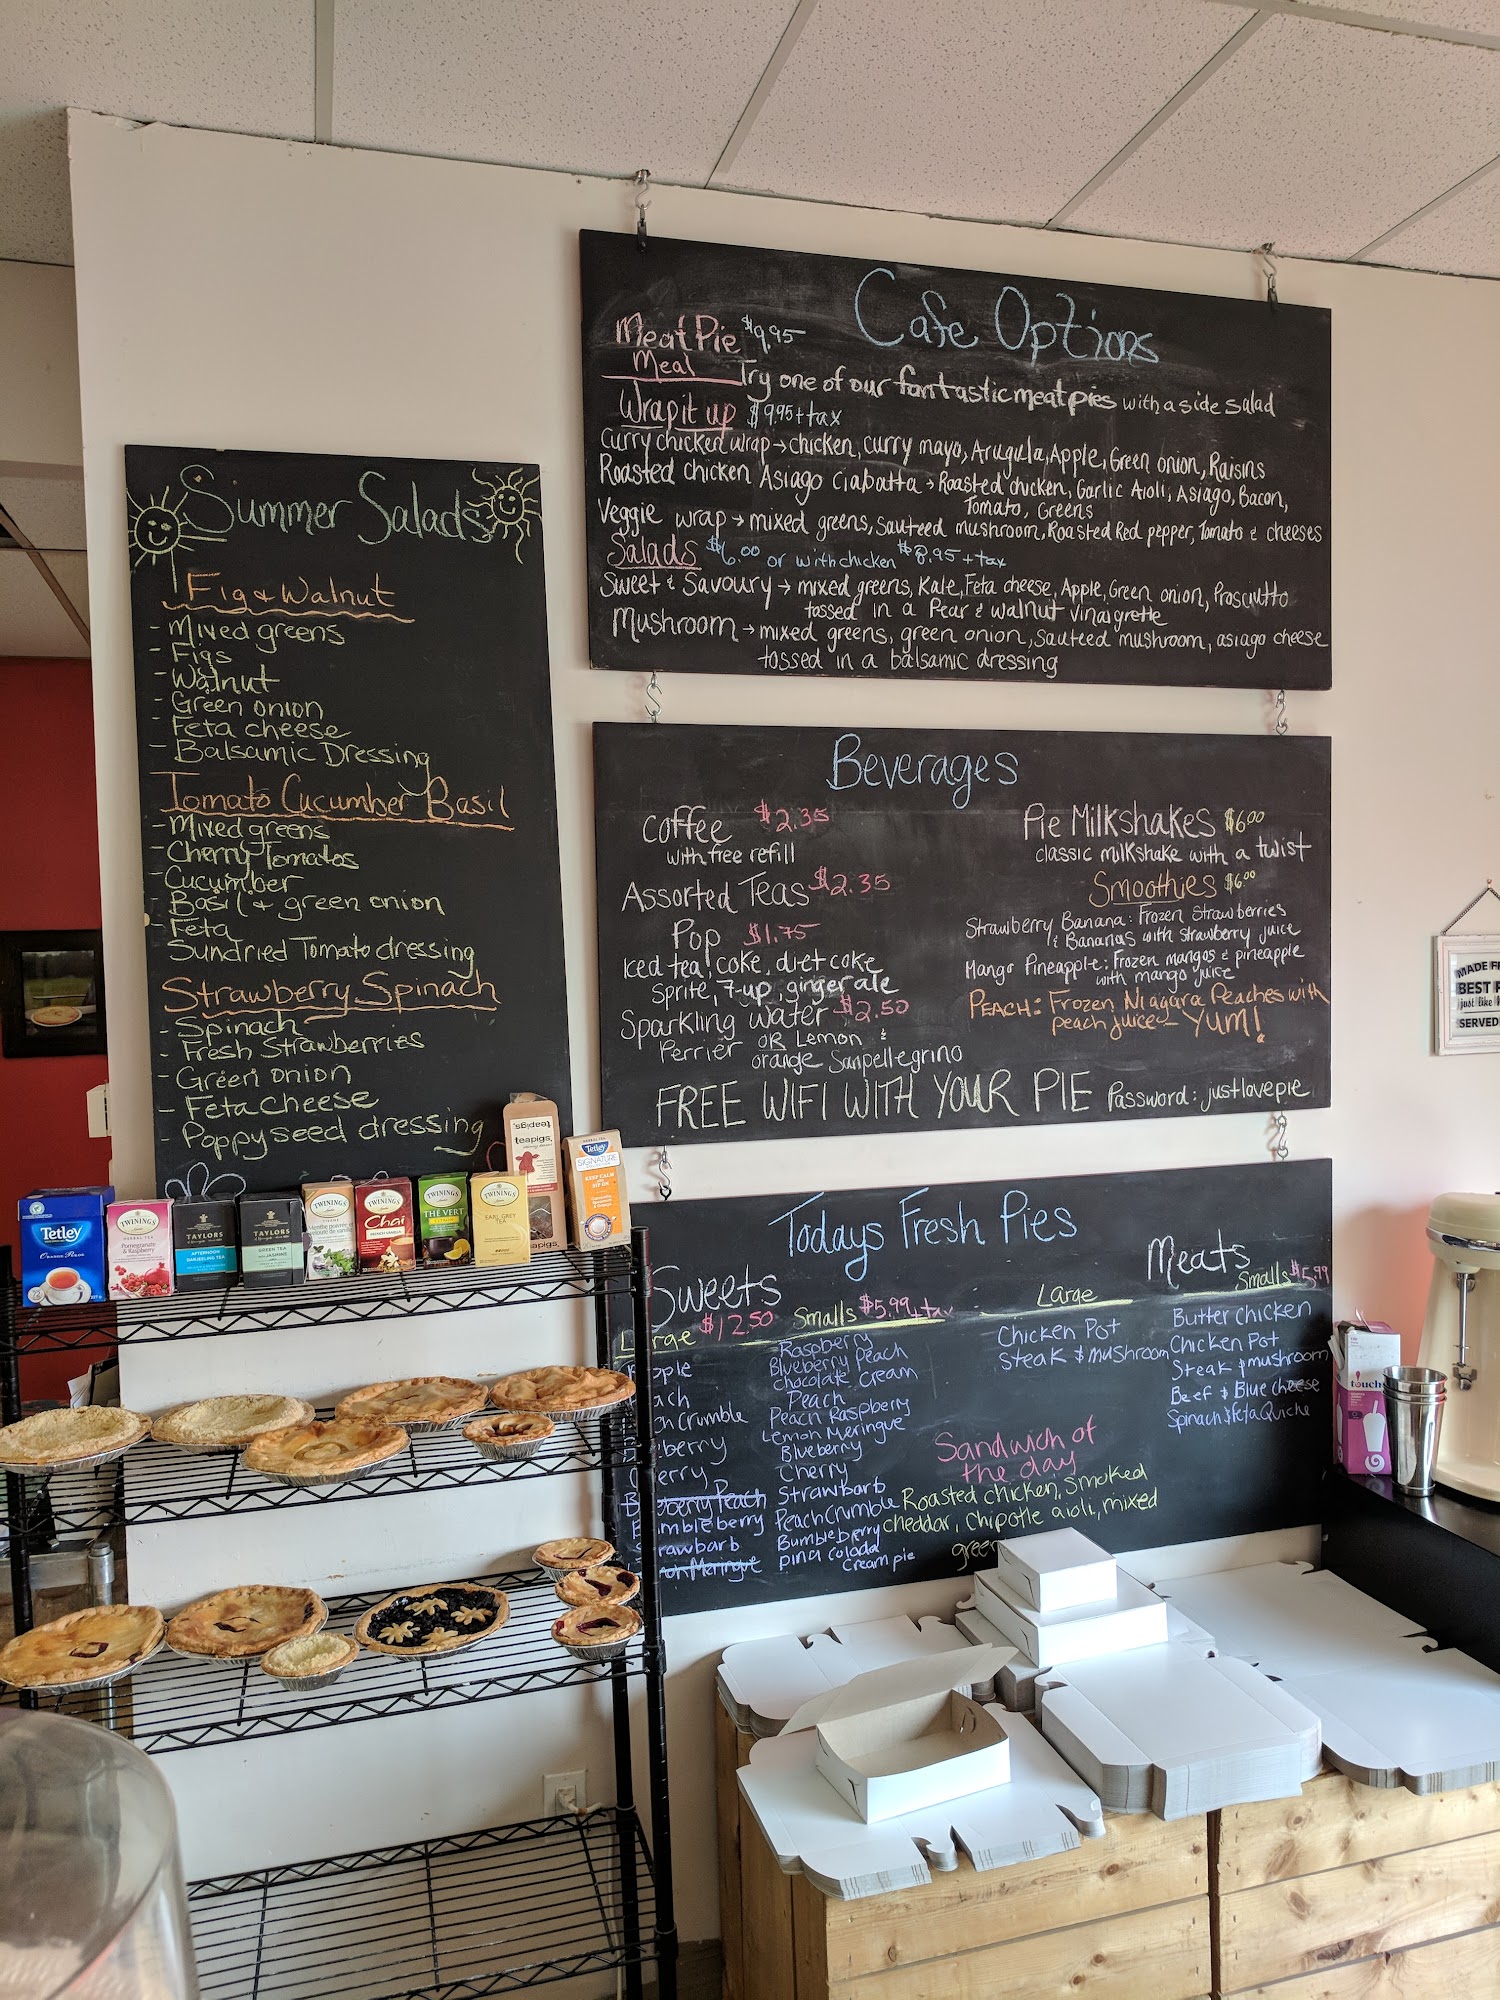 Summer Salads
Fig & Walnut
- Mixed greens
- Figs
- Walnut
- Green onion
- Feta cheese
- Balsamic Dressing
Tomato Cucumber Basil
- Mixed greens
- Cherry Tomatos
- Cucumber
- Basil & green onion
- Feta
- Sundried Tomato dressing
Strawberry Spinach
- Spinach
- Fresh Strawberries
- Green onion
- Feta cheese
- Poppyseed dressing
Cafe Options
Meat Pie $9.95
Meal
Try one of our fantastic meat pies with a side salad
Wrap it up $9.95 + tax
Curry chicken wrap → chicken, curry mayo, Arugula, Apple, Green onion, Raisins
Roasted chicken Asiago ciabatta → Roasted chicken, Garlic Aioli, Asiago, Bacon,
Tomato, Greens
Veggie wrap → mixed greens, Sauteed mushroom, Roasted Red pepper, Tomato & cheeses
Salads $6.00 or with chicken $8.95 + tax
Sweet & Savoury → mixed greens, Kale, Feta cheese, Apple, Green onion, Prosciutto
tossed in a Pear & walnut vinaigrette
Mushroom → mixed greens, green onion, sauteed mushroom, asiago cheese
tossed in a balsamic dressing
Beverages
coffee $2.35
with free refill
Assorted Teas $2.35
Pop $1.75
Iced tea, coke, diet coke
Sprite, 7-up, ginger ale
Sparkling water $2.50
Perrier OR Lemon &
orange Sanpellegrino
Pie Milkshakes $6.00
classic milkshake with a twist
Smoothies $6.00
Strawberry Banana: Frozen Strawberries
& Bananas with strawberry juice
Mango Pineapple: Frozen mangos & pineapple
with mango juice
PEACH: Frozen Niagara Peaches with
peach juice - YUM!
FREE WIFI WITH YOUR PIE Password: justlovepie
Todays Fresh Pies
Sweets
Large $12.50
Cherry
Blueberry Peach
Bumbleberry
Smalls $5.99 + tax
Raspberry
Blueberry Peach
Chocolate Cream
Peach
Peach Raspberry
Lemon Meringue
Blueberry
Cherry
Strawbarb
Peach Crumble
Bumbleberry
pina colada
Cream pie
Large
Chicken Pot
Steak & mushroom
Meats
Smalls $5.99
Butter chicken
Chicken Pot
Steak & mushroom
Beef & Blue cheese
Spinach & feta Quiche
Sandwich of
the day
Roasted chicken, smoked
cheddar, chipotle aioli, mixed
green
teapigs.
teapigs.
Tetley
SIGNATURE
KEEP CALM
Tetley
Orange Pekoe
TWININGS
Pomegranate
& Raspberry
TAYLORS
AFTERNOON
DARJEELING TEA
TAYLORS
GREEN TEA
with JASMINE
TWININGS
TWININGS
Chai
FRENCH VANILLA
TWININGS
THÉ VERT
TWININGS
EARL GREY
TEA
touch
MADE FR
BEST P
just like
SERVED